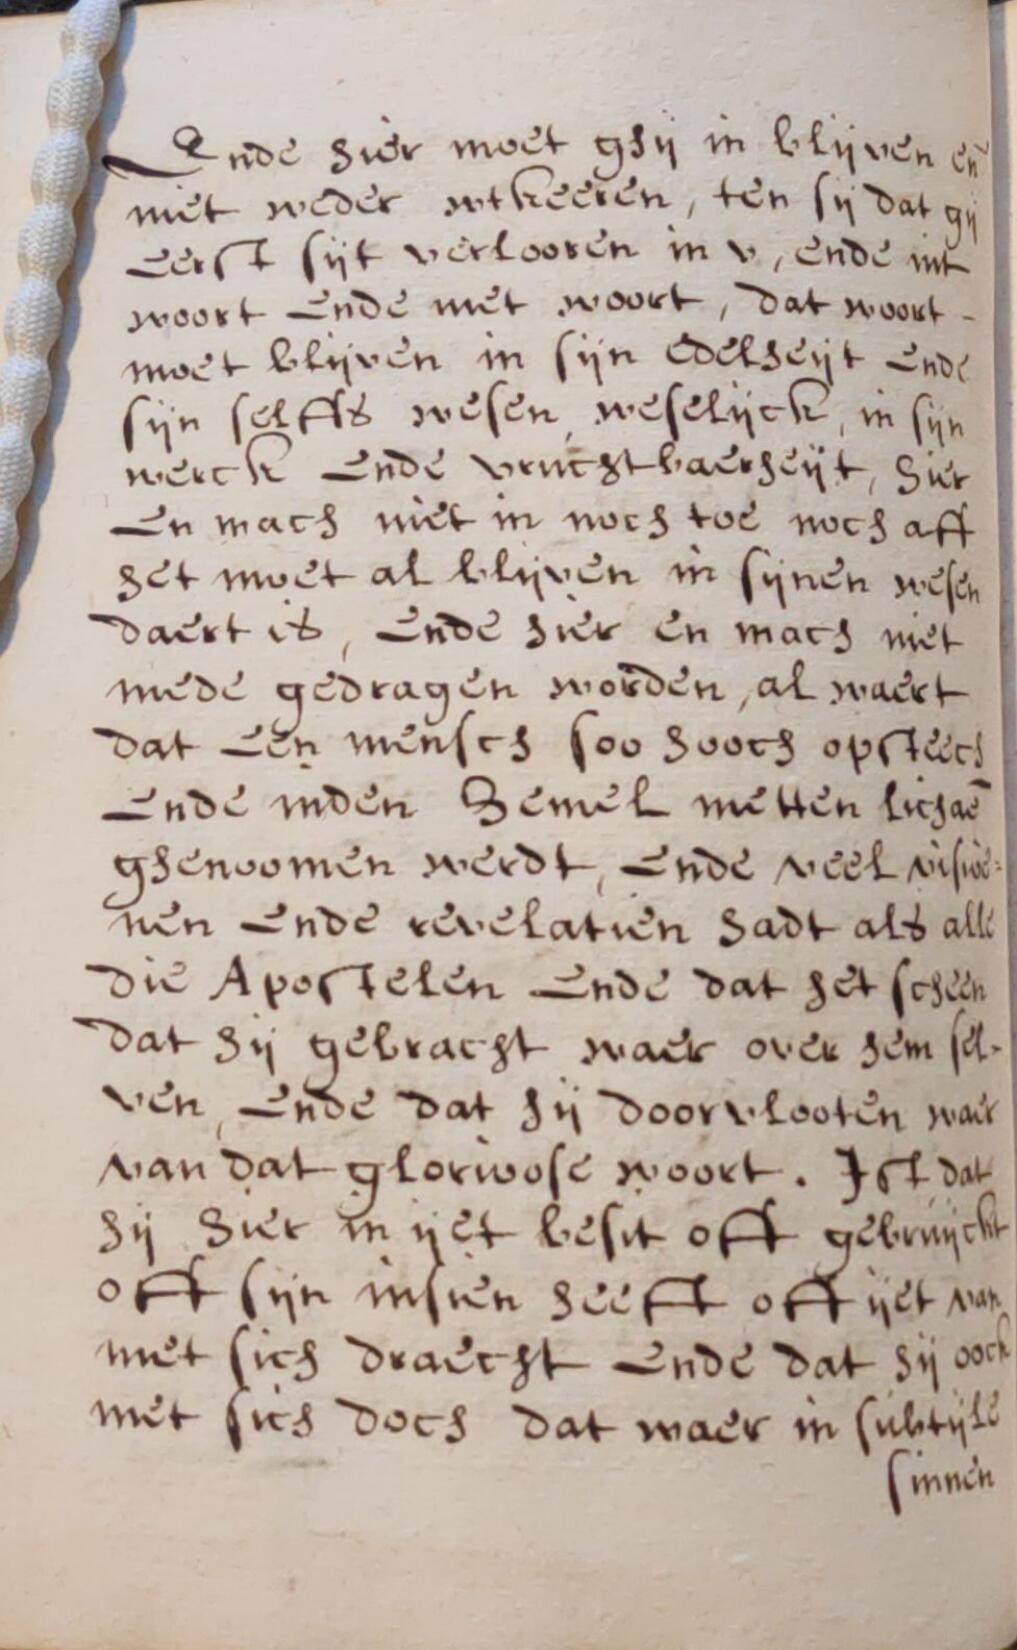 Ende hier moet ghij in blijven en̄
niet weder wtkeeren, ten sij dat gij
Eerst sijt verlooren in v, ende int
woort Ende met woort, dat woort -
moet blijven in sijn Edelheijt Ende
sijn selffs wesen, weselijck, in sijn
werck Ende vruchtbaerheijt, hier
En mach niet in noch toe noch aff
het moet al blijven in sijnen wesen
daert is, Ende hier en mach niet
mede gedragen worden, al waert
dat Een mensch soo hooch opsteech
Ende inden Hemel metten lichaē
ghenoomen werdt, Ende veel visioe-
nen Ende revelatien hadt als alle
die Apostelen Ende dat het scheen
dat hij gebracht waer over hem sel-
ven, Ende dat hij doorvlooten waer
van dat glorioose woort. Ist dat
hij hier in ijet besit off gebruijckt
off sijn insien heeft off ijet van
met sich draecht Ende dat hij oock
met sich doch dat waer in subtijle
sinnen